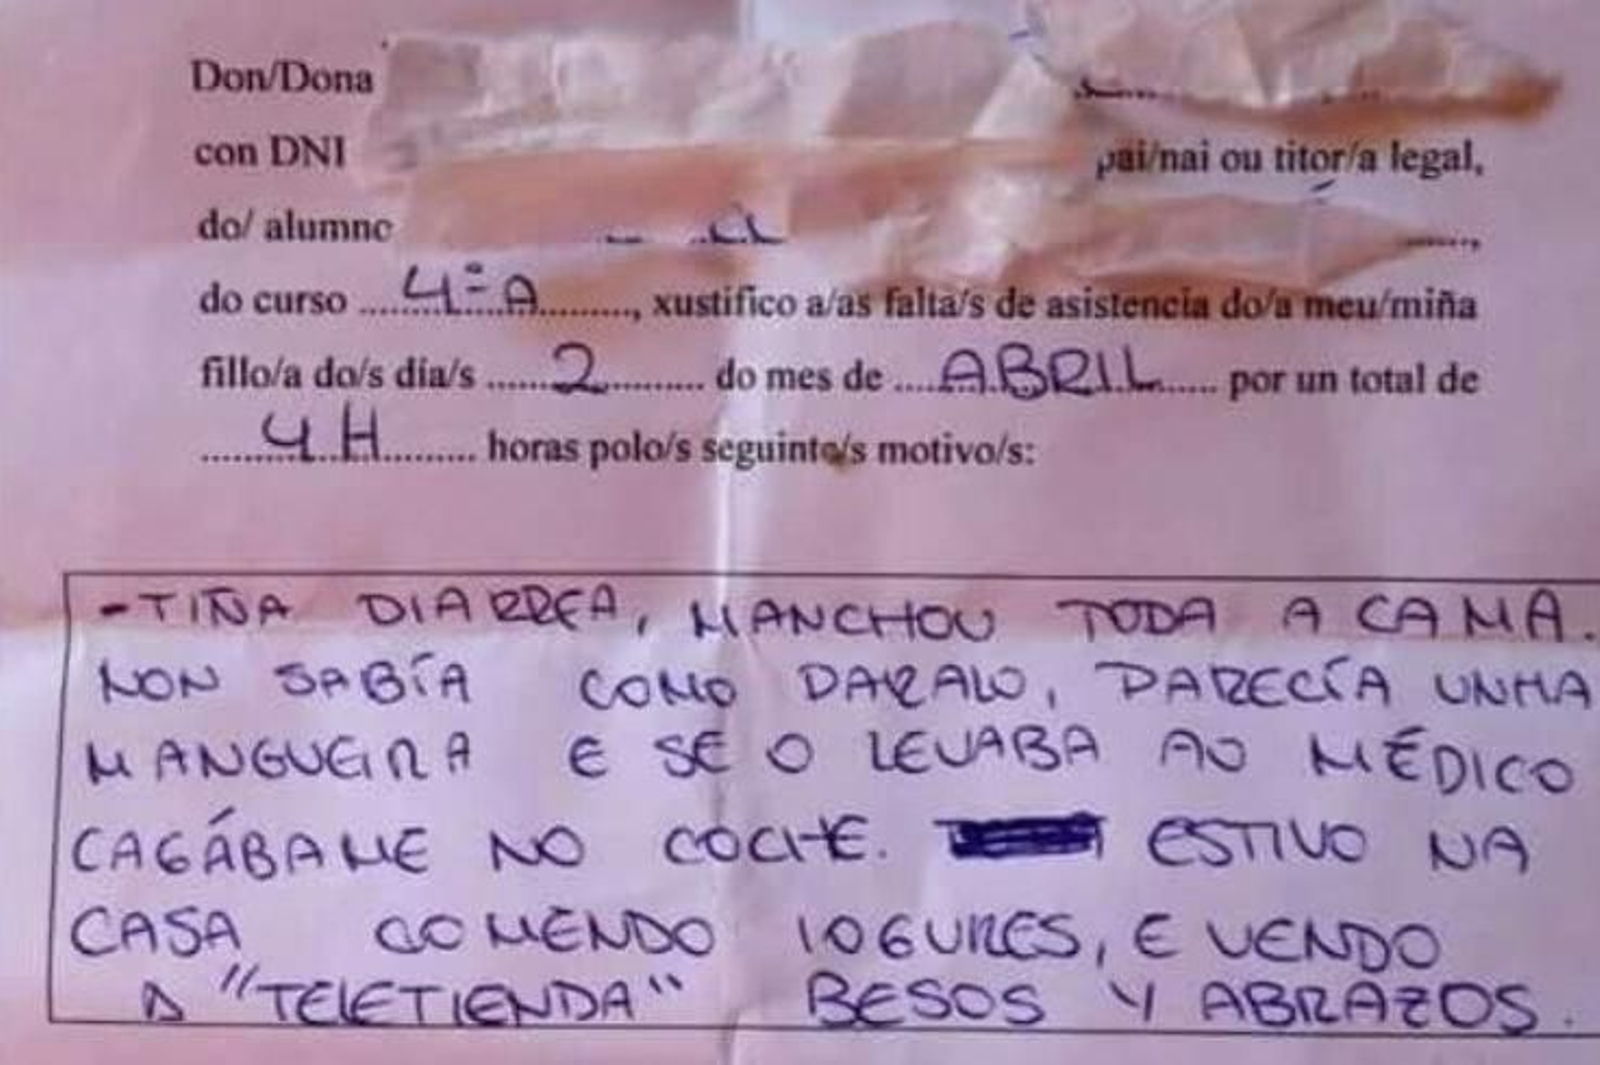 Don/Dona
con DNI pai/nai ou titór/a legal,
do/ alumno
do curso ....4ºA...., xustifico a/as falta/s de asistencia do/a meu/miña
fillo/a do/s día/s ....2.... do mes de ....ABRIL.... por un total de
....4H.... horas polo/s seguinte/s motivo/s:
-TIÑA DIARREA, MANCHOU TODA A CAMA.
NON SABÍA COMO PARALO, PARECÍA UNHA
MANGUEIRA E SE O LEVABA AO MÉDICO
CAGÁBAME NO COCHE. ESTIVO NA
CASA COMENDO IOGURES, E VENDO
A "TELETIENDA" BESOS Y ABRAZOS.